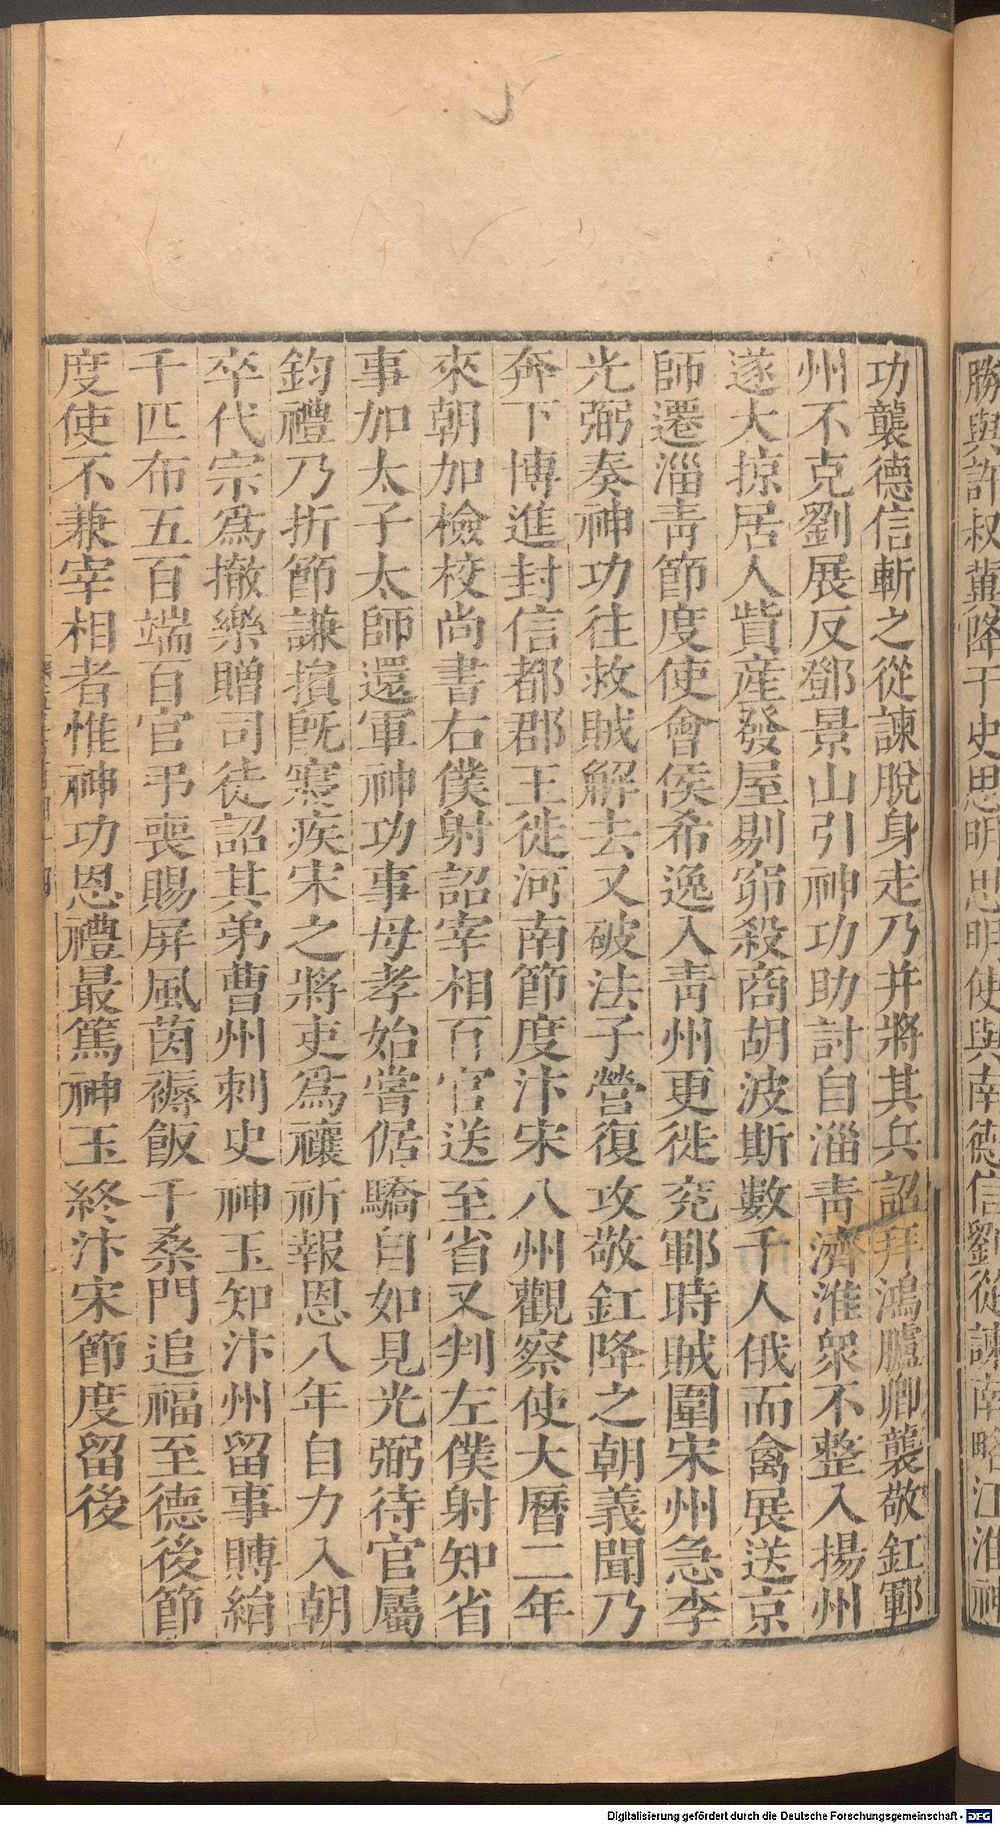 勝與許叔冀降于史思明思明使與南德信劉從諫南略江淮神
功襲德信斬之從諫脫身走乃并將其兵詔拜鴻臚卿襲敬釭鄆
州不克劉展反鄧景山引神功助討自淄靑濟淮衆不整入揚州
遂大掠居人貲産發屋剔窌殺商胡波斯數千人俄而禽展送京
師遷淄靑節度使會侯希逸入靑州更徙兖鄆時賊圍宋州急李
光弼奏神功往救賊解去又破法子營復攻敬釭降之朝義聞乃
奔下博進封信都郡王徙河南節度汴宋八州觀察使大曆二年
來朝加檢校尚書右僕射詔宰相百官送至省又判左僕射知省
事加太子太師還軍神功事母孝始嘗倨驕自如見光弼待官屬
鈞禮乃折節謙損旣寢疾宋之將吏爲禳祈報恩八年自力入朝
卒代宗爲撤樂贈司徒詔其弟曹州刺史神玉知汴州留事賻絹
千匹布五百端百官弔喪賜屏風茵褥飯千桑門追福至德後節
度使不兼宰相者惟神功恩禮最篤神玉終汴宋節度留後
Digitalisierung gefördert durch die Deutsche Forschungsgemeinschaft - DFG